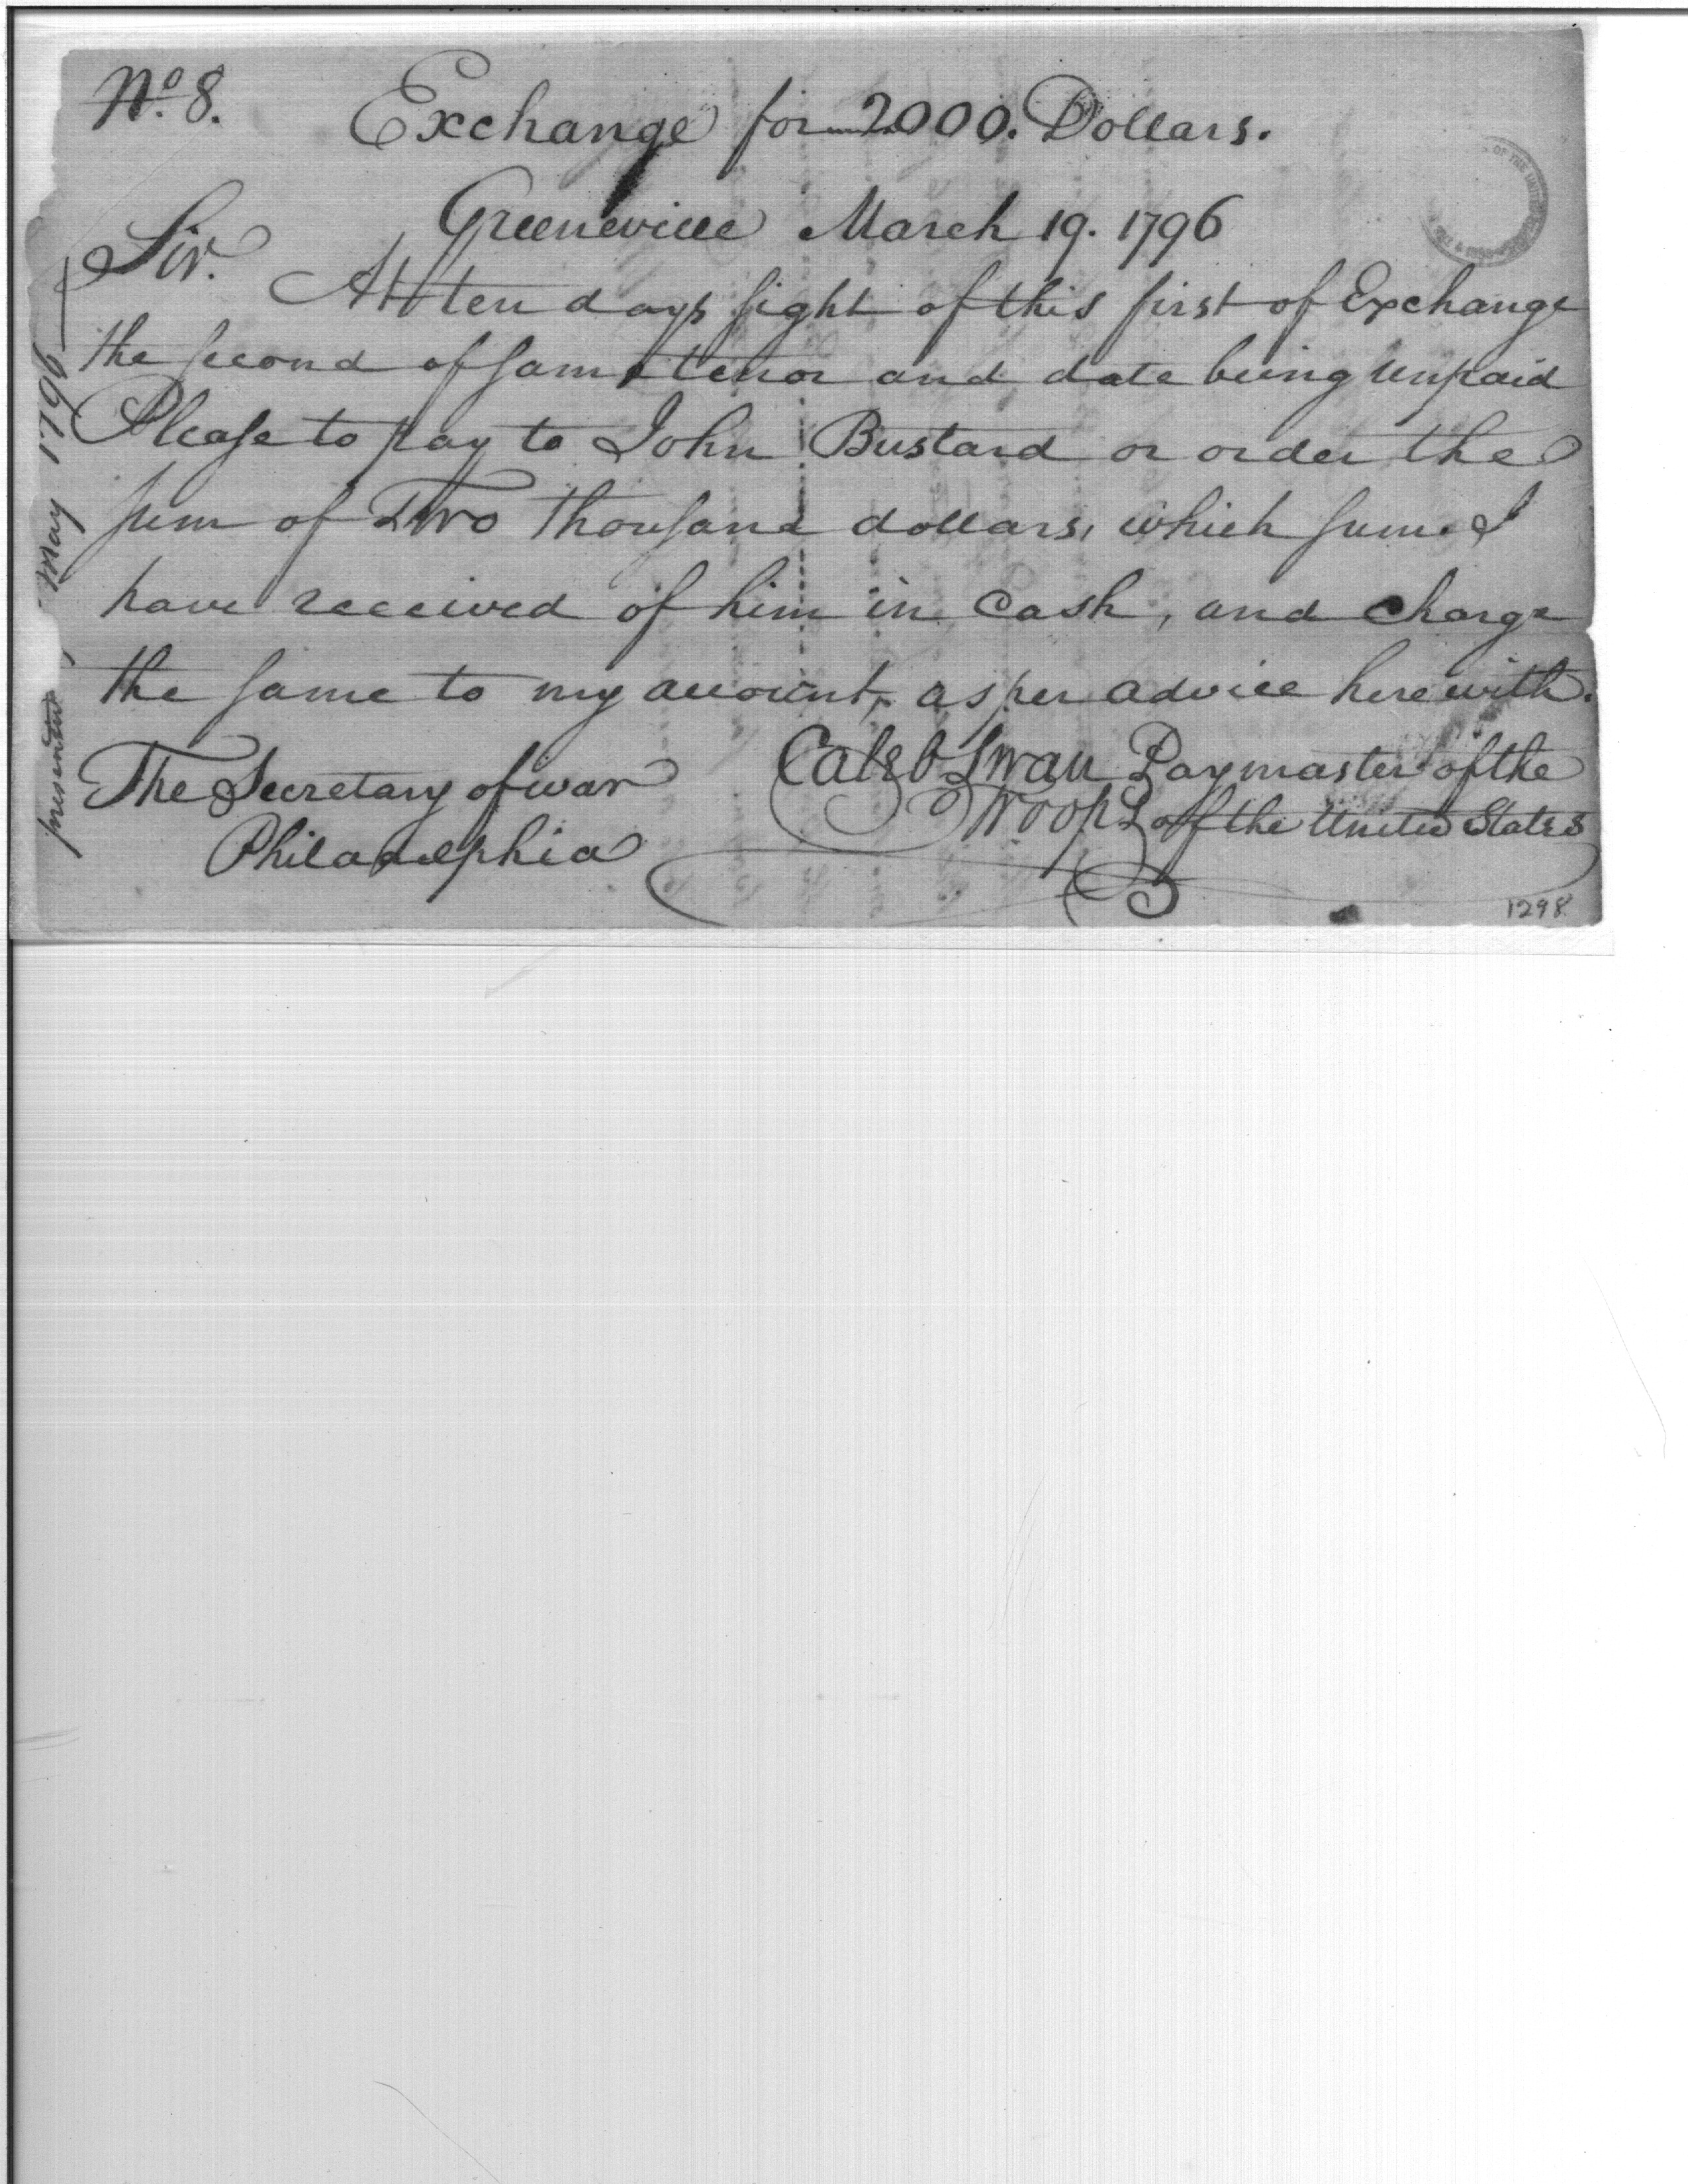 No. 8.
Exchange for 2000. Dollars.
Greeneville March 19. 1796
Sir.
At ten days sight of this first of Exchange
the second of same tenor and date being unpaid
Please to pay to John Bustard or order the
sum of Two thousand dollars, which sum I
have received of him in Cash, and charge
the same to my account, as per advice herewith.
Caleb Swan Paymaster of the
Troops of the United States
The Secretary of war
Philadelphia
presented May 1796
OF THE UNITED
1298